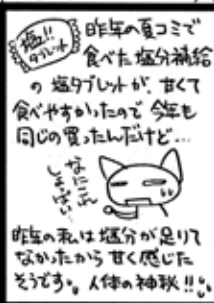 塩!!
タブレット
昨年の夏コミで
食べた塩分補給
の 塩タブレットが、甘くて
食べやすかったので 今年も
同じの買ったんだけど…
なにこれ
しょっぱい…
昨年の私は塩分が足りて
なかったから甘く感じた
そうです。人体の神秘!!